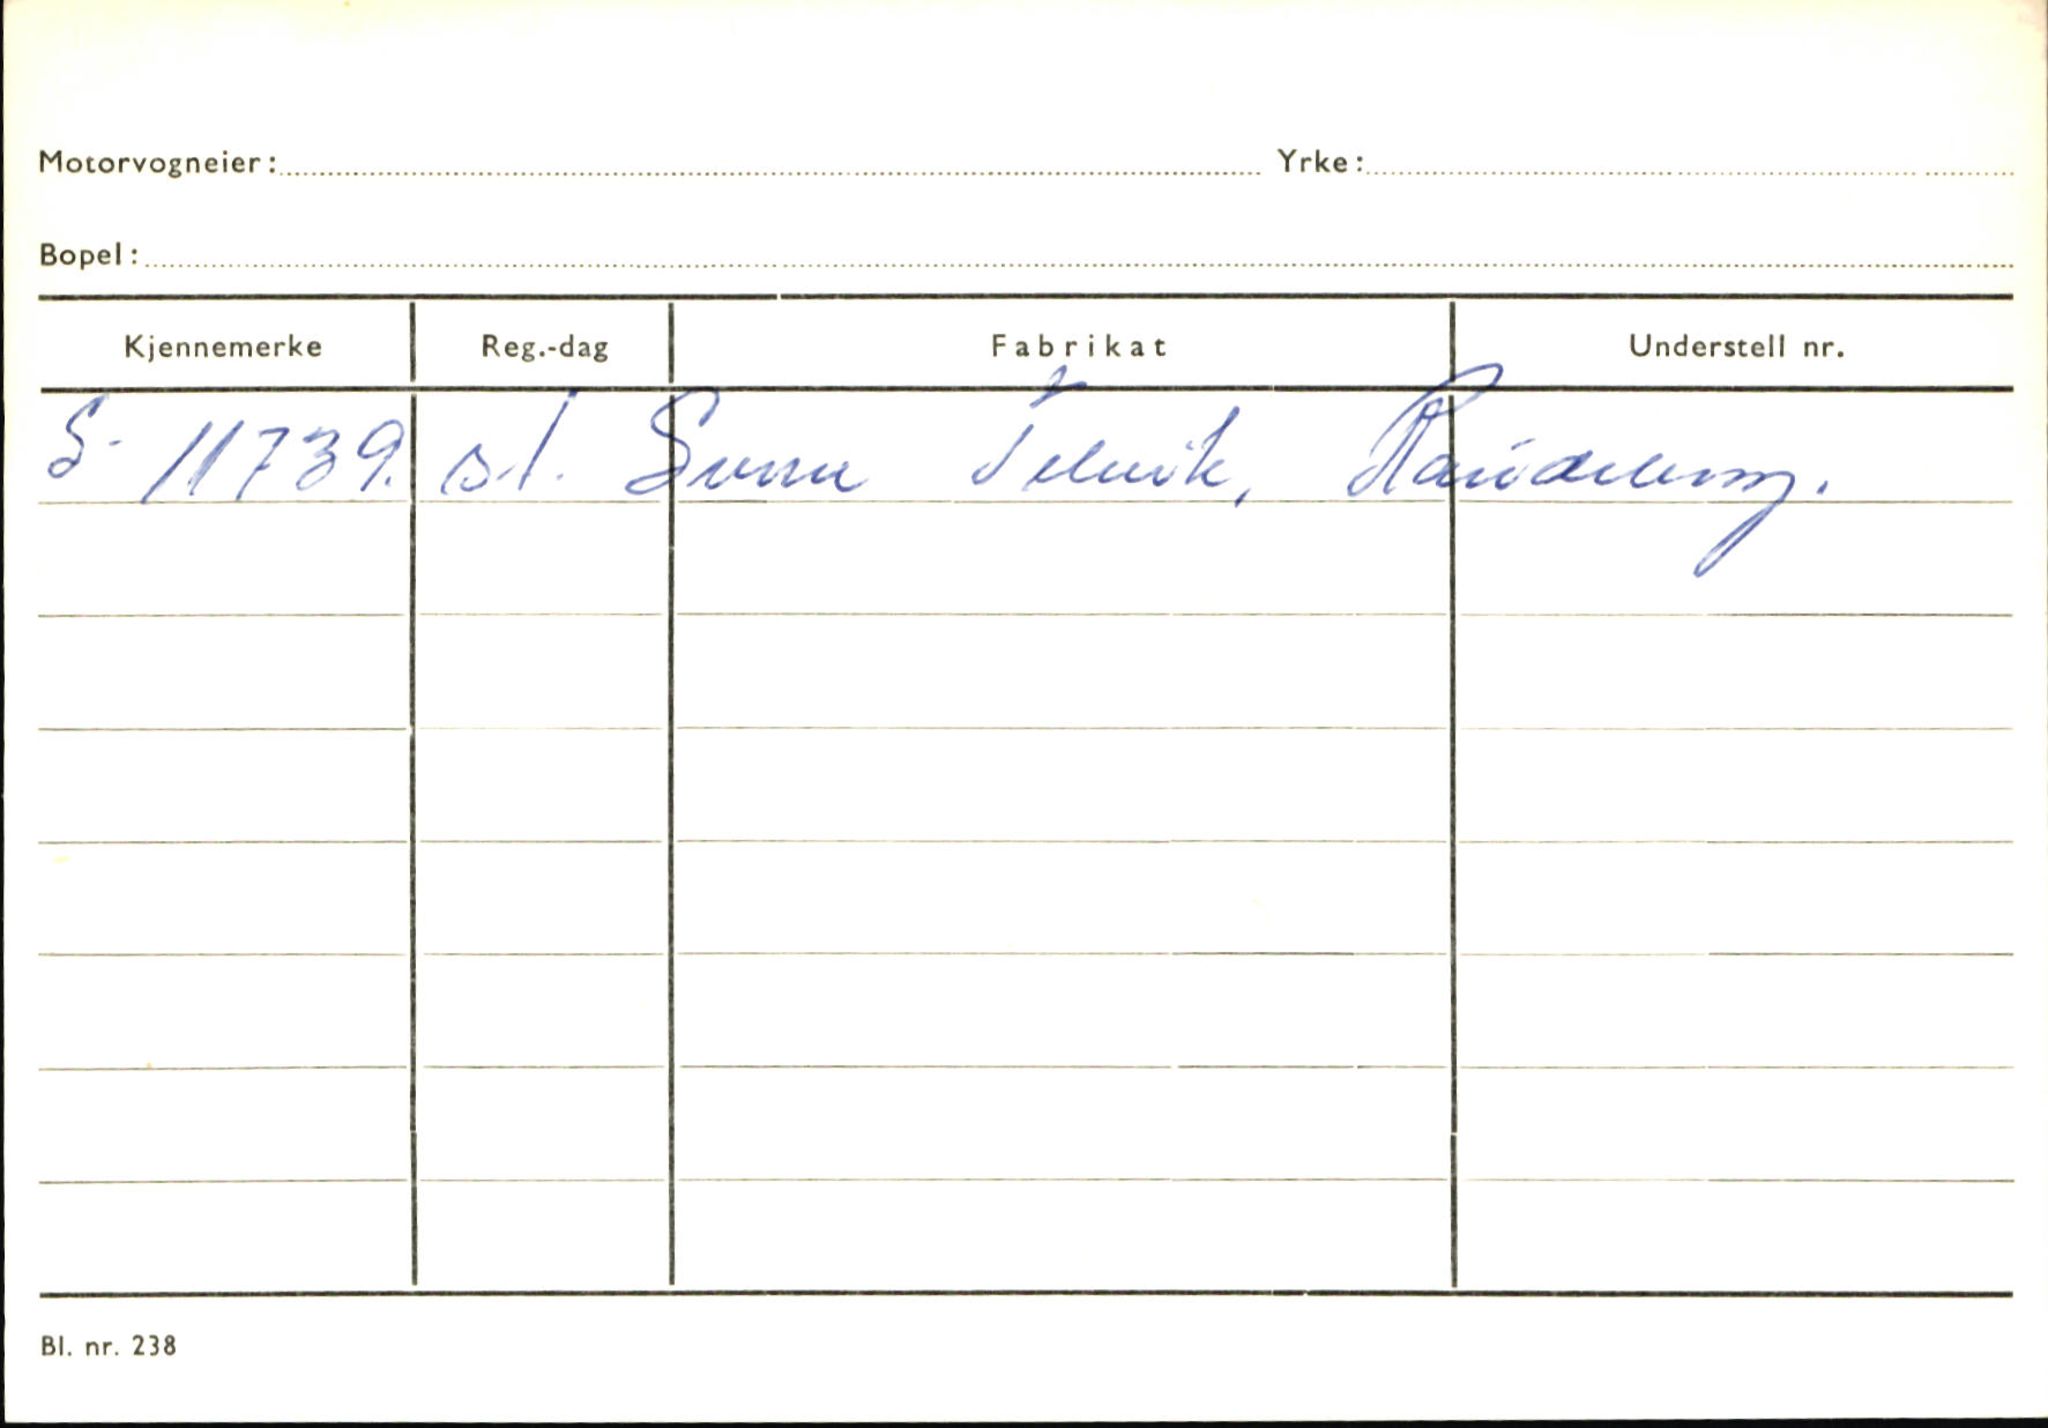 Motorvogneier: Yrke:
Bopel:
Kjennemerke Reg.-dag Fabrikat Understell nr.
S- 11739. s.f. Telvik,
Bl. nr. 238